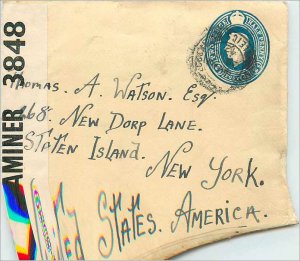 AMINER 3848
HALF PENNY
Thomas. A. Watson. Esq.
168. New Dorp Lane.
Staten Island.
New York.
States. America.